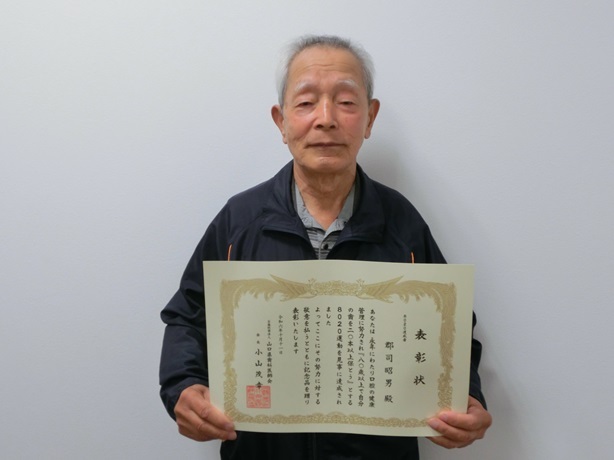 表彰状
郡司昭男 殿
あなたは、永年にわたり口腔の健康
管理に努力され「八〇歳以上で自分
の歯を二〇本以上保とう」とする
8020運動を見事に達成され
ました
よってここにその努力に対する
敬意を払うとともに記念品を贈り
表彰いたします
会長 小山茂幸